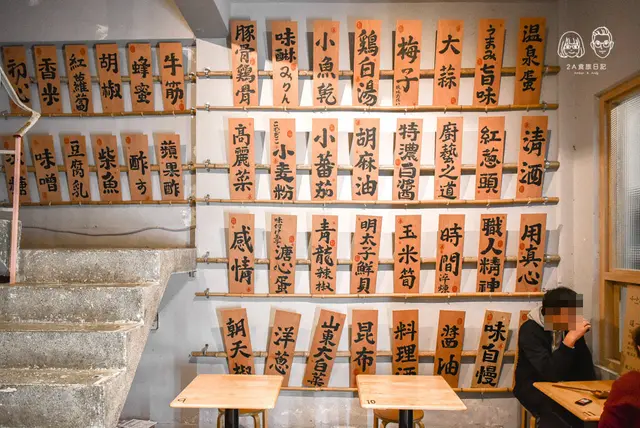 2A食旅日記
香米
紅蘿蔔
胡椒
蜂蜜
牛筋
豚骨雞骨
味醂みりん
小魚乾
鷄白湯
梅子
大蒜
うまみ旨味
溫泉蛋
味噌
豆腐乳
柴魚
酢す
蘋果酢
高麗菜
小麥粉
小蕃茄
胡麻油
特濃白醬
廚藝之道
紅葱頭
清酒
感情
溏心蛋
青龍辣椒
明太子鮮貝
玉米筍
時間
職人精神
用真心
朝天椒
洋葱
山東大白菜
昆布
料理酒
醬油
味自慢